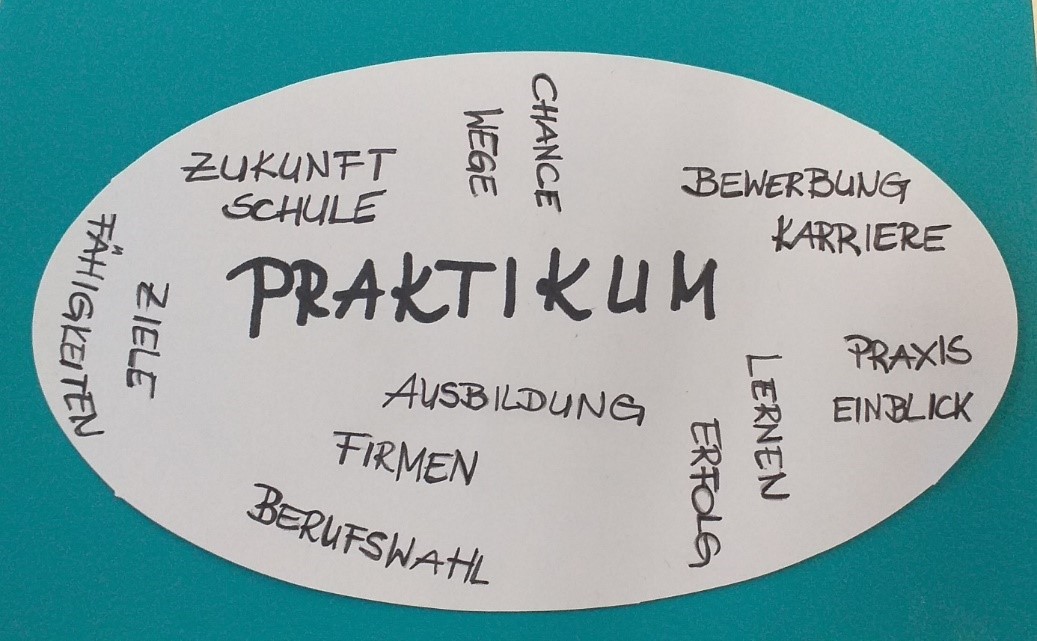 CHANCE
WEGE
ZUKUNFT
SCHULE
BEWERBUNG
KARRIERE
FÄHIGKEITEN
ZIELE
PRAKTIKUM
PRAXIS
EINBLICK
LERNEN
ERFOLG
AUSBILDUNG
FIRMEN
BERUFSWAHL